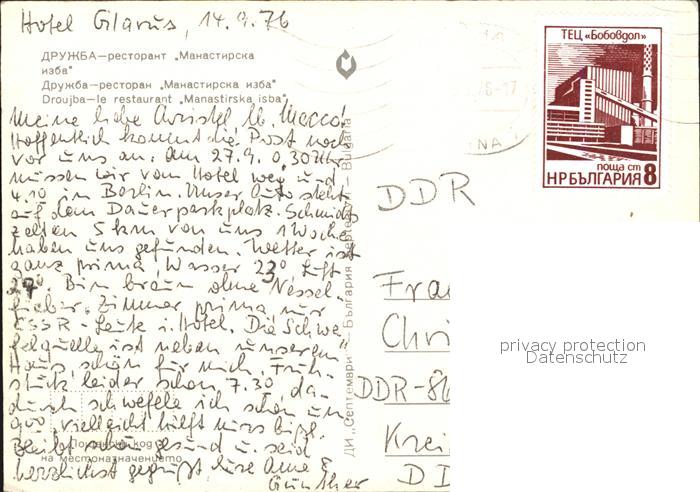 Hotel Glarus, 14.9.76
ДРУЖБА—ресторант „Манастирска
изба“
Дружба—ресторан „Манастирска изба“
Droujba—le restaurant „Manastirska isba“
Meine liebe Christel, lb.
Hoffentlich kommt die Post noch
vor uns an. Am 27.9. 0,30 Uhr
müssen wir vom Hotel weg und
4.10 in Berlin. Unser Auto steht
auf dem Dauerparkplatz. Schmidts
zelten 5 km von uns 1 Woche
haben uns gefunden. Wetter ist
ganz prima, Wasser 23° Luft
27°. Bin braun ohne Nessel-
fieber. Zimmer prima, nur
ČSSR-Leute i. Hotel. Die Schwe-
felquelle ist neben unserem
Haus, schön für mich. Früh-
stück leider schon 7.30, da-
durch schwefele ich schon um
9oo, vielleicht hilft
Bleibt schön gesund u. seid
herzlichst gegrüßt, Eure Anne &
Günther
на местоназначението
ДИ „Септември“ — България
Bulgaria
ТЕЦ «Бобовдол»
поща ст
НРБЪЛГАРИЯ 8
DDR
Fra
Chri
DDR-86
Krei
DD
privacy protection
Datenschutz